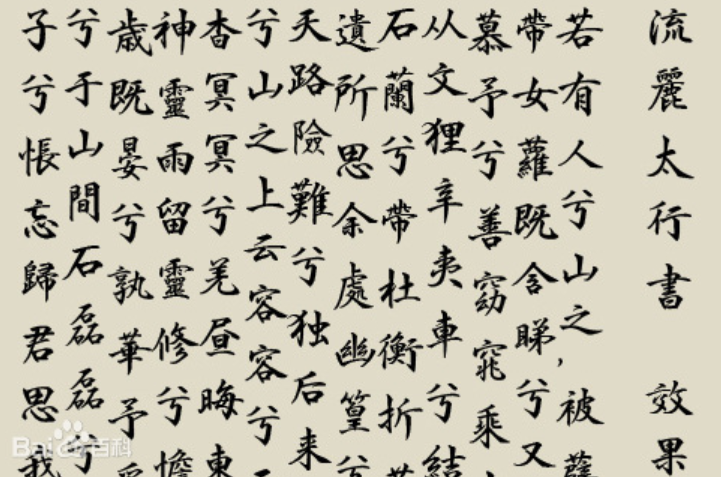 流麗太行書 效果
若有人兮山之,被薜
帶女蘿既含睇兮又
慕予兮善窈窕乘
从文狸辛夷車兮結
石蘭兮帶杜衡折
遺所思余處幽篁兮
天路險難兮独后来
兮山之上云容容兮
杳冥冥兮羌昼晦東
神靈雨留靈修兮憺
歲既晏兮孰華予
兮于山間石磊磊兮
子兮悵忘歸君思我
Bai 百科